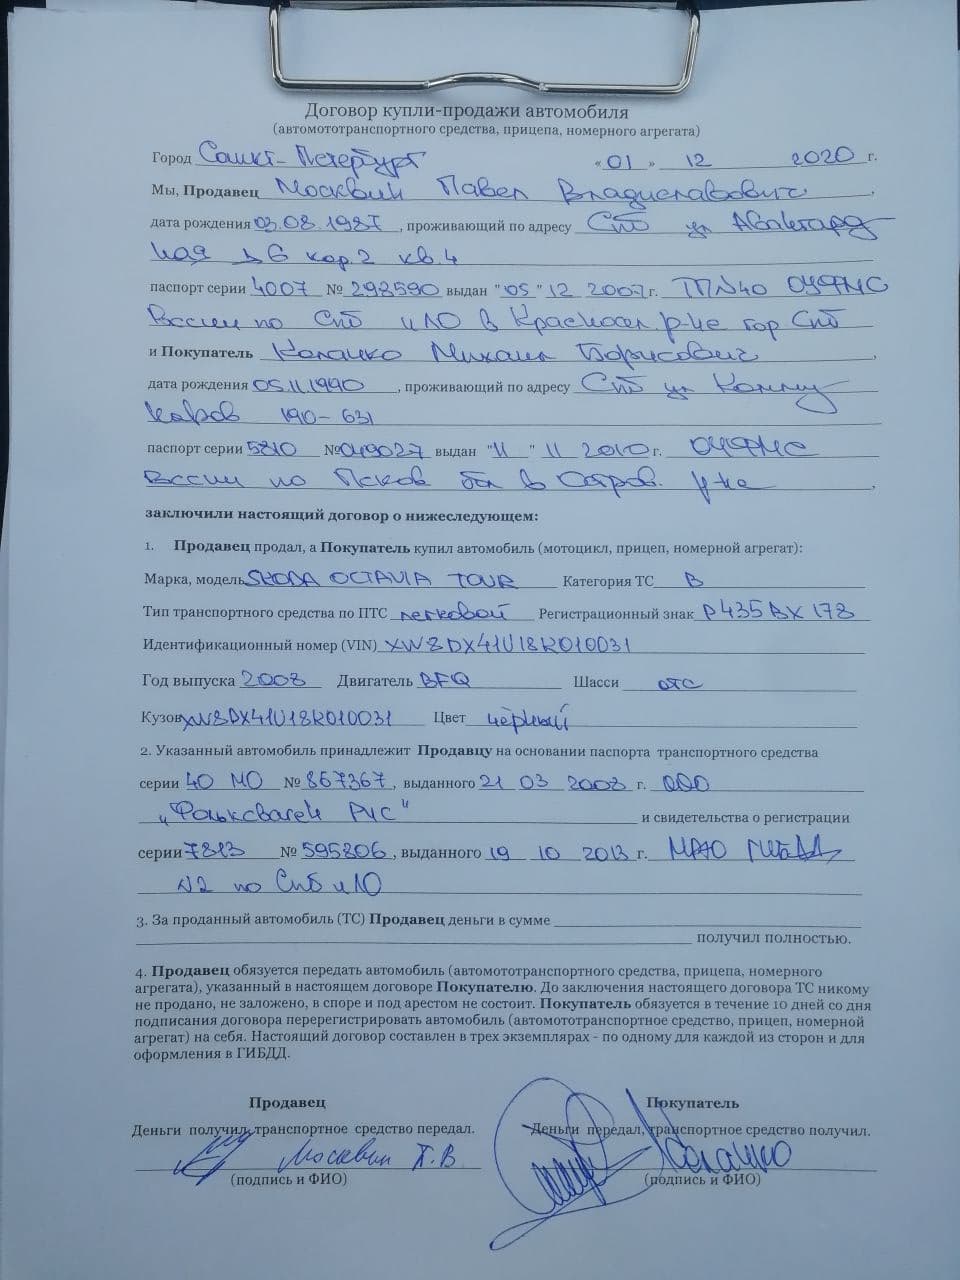 Договор купли-продажи автомобиля
(автомототранспортного средства, прицепа, номерного агрегата)
Город Санкт-Петербург «01» 12 2020 г.
Мы, Продавец Москвин Павел Владиславович,
дата рождения 03.08.1987, проживающий по адресу СПб ул Авангард
ная д 6 кор.2 кв.4
паспорт серии 4007 № 298590 выдан "05" 12 2007 г. ТП №40 ОУФМС
России по СПб и ЛО в Красносел. р-не гор СПб
и Покупатель Михаил Борисович,
дата рождения 05.11.1990, проживающий по адресу СПб ул Комму
наров 190-631
паспорт серии 5810 №049027 выдан "11" 11 2010 г. ОУФМС
России по Псков обл в Остров. р-не,
заключили настоящий договор о нижеследующем:
1. Продавец продал, а Покупатель купил автомобиль (мотоцикл, прицеп, номерной агрегат):
Марка, модель SKODA OCTAVIA TOUR Категория ТС B
Тип транспортного средства по ПТС легковой Регистрационный знак Р435ВХ178
Идентификационный номер (VIN) XW8DX41U18K010031
Год выпуска 2008 Двигатель BFQ Шасси отс
Кузов XW8DX41U18K010031 Цвет чёрный
2. Указанный автомобиль принадлежит Продавцу на основании паспорта транспортного средства
серии 40 МО № 867367, выданного 21 03 2008 г. ООО
„Фольксваген Рус" и свидетельства о регистрации
серии 7813 № 595806, выданного 19 10 2013 г. МРЭО ГИБДД
№2 по СПб и ЛО
3. За проданный автомобиль (ТС) Продавец деньги в сумме
получил полностью.
4. Продавец обязуется передать автомобиль (автомототранспортного средства, прицепа, номерного
агрегата), указанный в настоящем договоре Покупателю. До заключения настоящего договора ТС никому
не продано, не заложено, в споре и под арестом не состоит. Покупатель обязуется в течение 10 дней со дня
подписания договора перерегистрировать автомобиль (автомототранспортное средство, прицеп, номерной
агрегат) на себя. Настоящий договор составлен в трех экземплярах - по одному для каждой из сторон и для
оформления в ГИБДД.
Продавец Покупатель
Деньги получил, транспортное средство передал. Деньги передал, транспортное средство получил.
Москвин П.В
(подпись и ФИО) (подпись и ФИО)